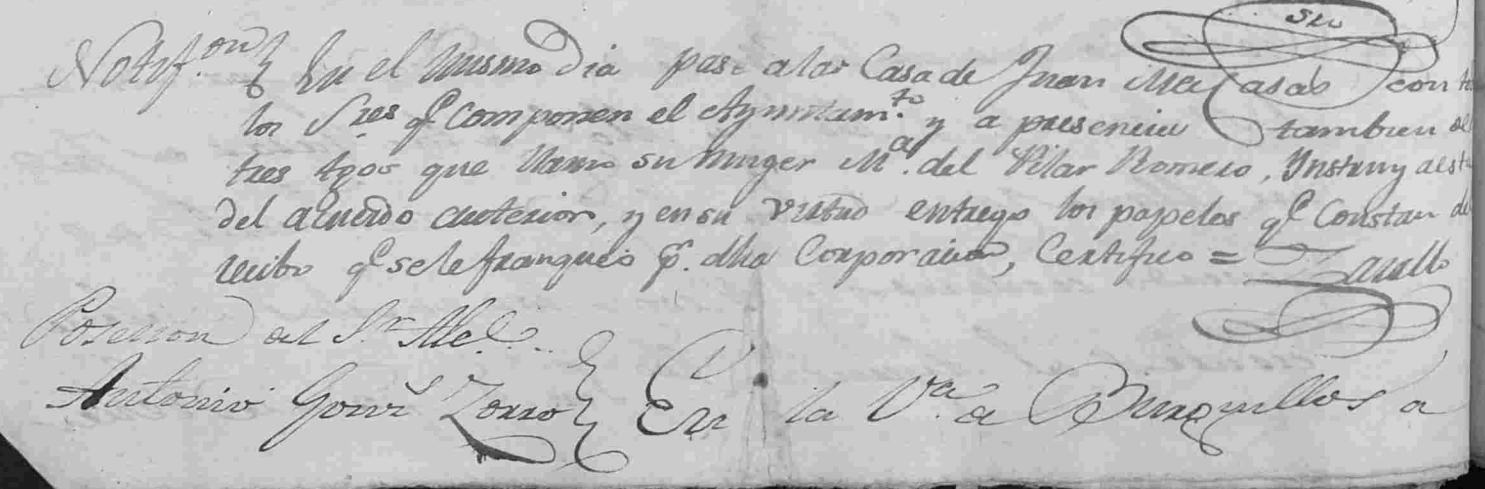 Srio
Notif.on En el mismo dia pase a las Casa de Juan Me Casas con
los Sres q.e componen el Ayuntam.to y a presencia tambien de
tres tgos que llamo su muger M.a del Pilar Romero, Ynstruy a esta
del acuerdo anterior, y en su virtud entrego los papeles q.e Constan del
recibo q.e se le franqueó p.r dha Corporacion, Certifico =
Posesion del S.r Alc.e
Antonio Gonz Zorro En la V.a de Burguillos a